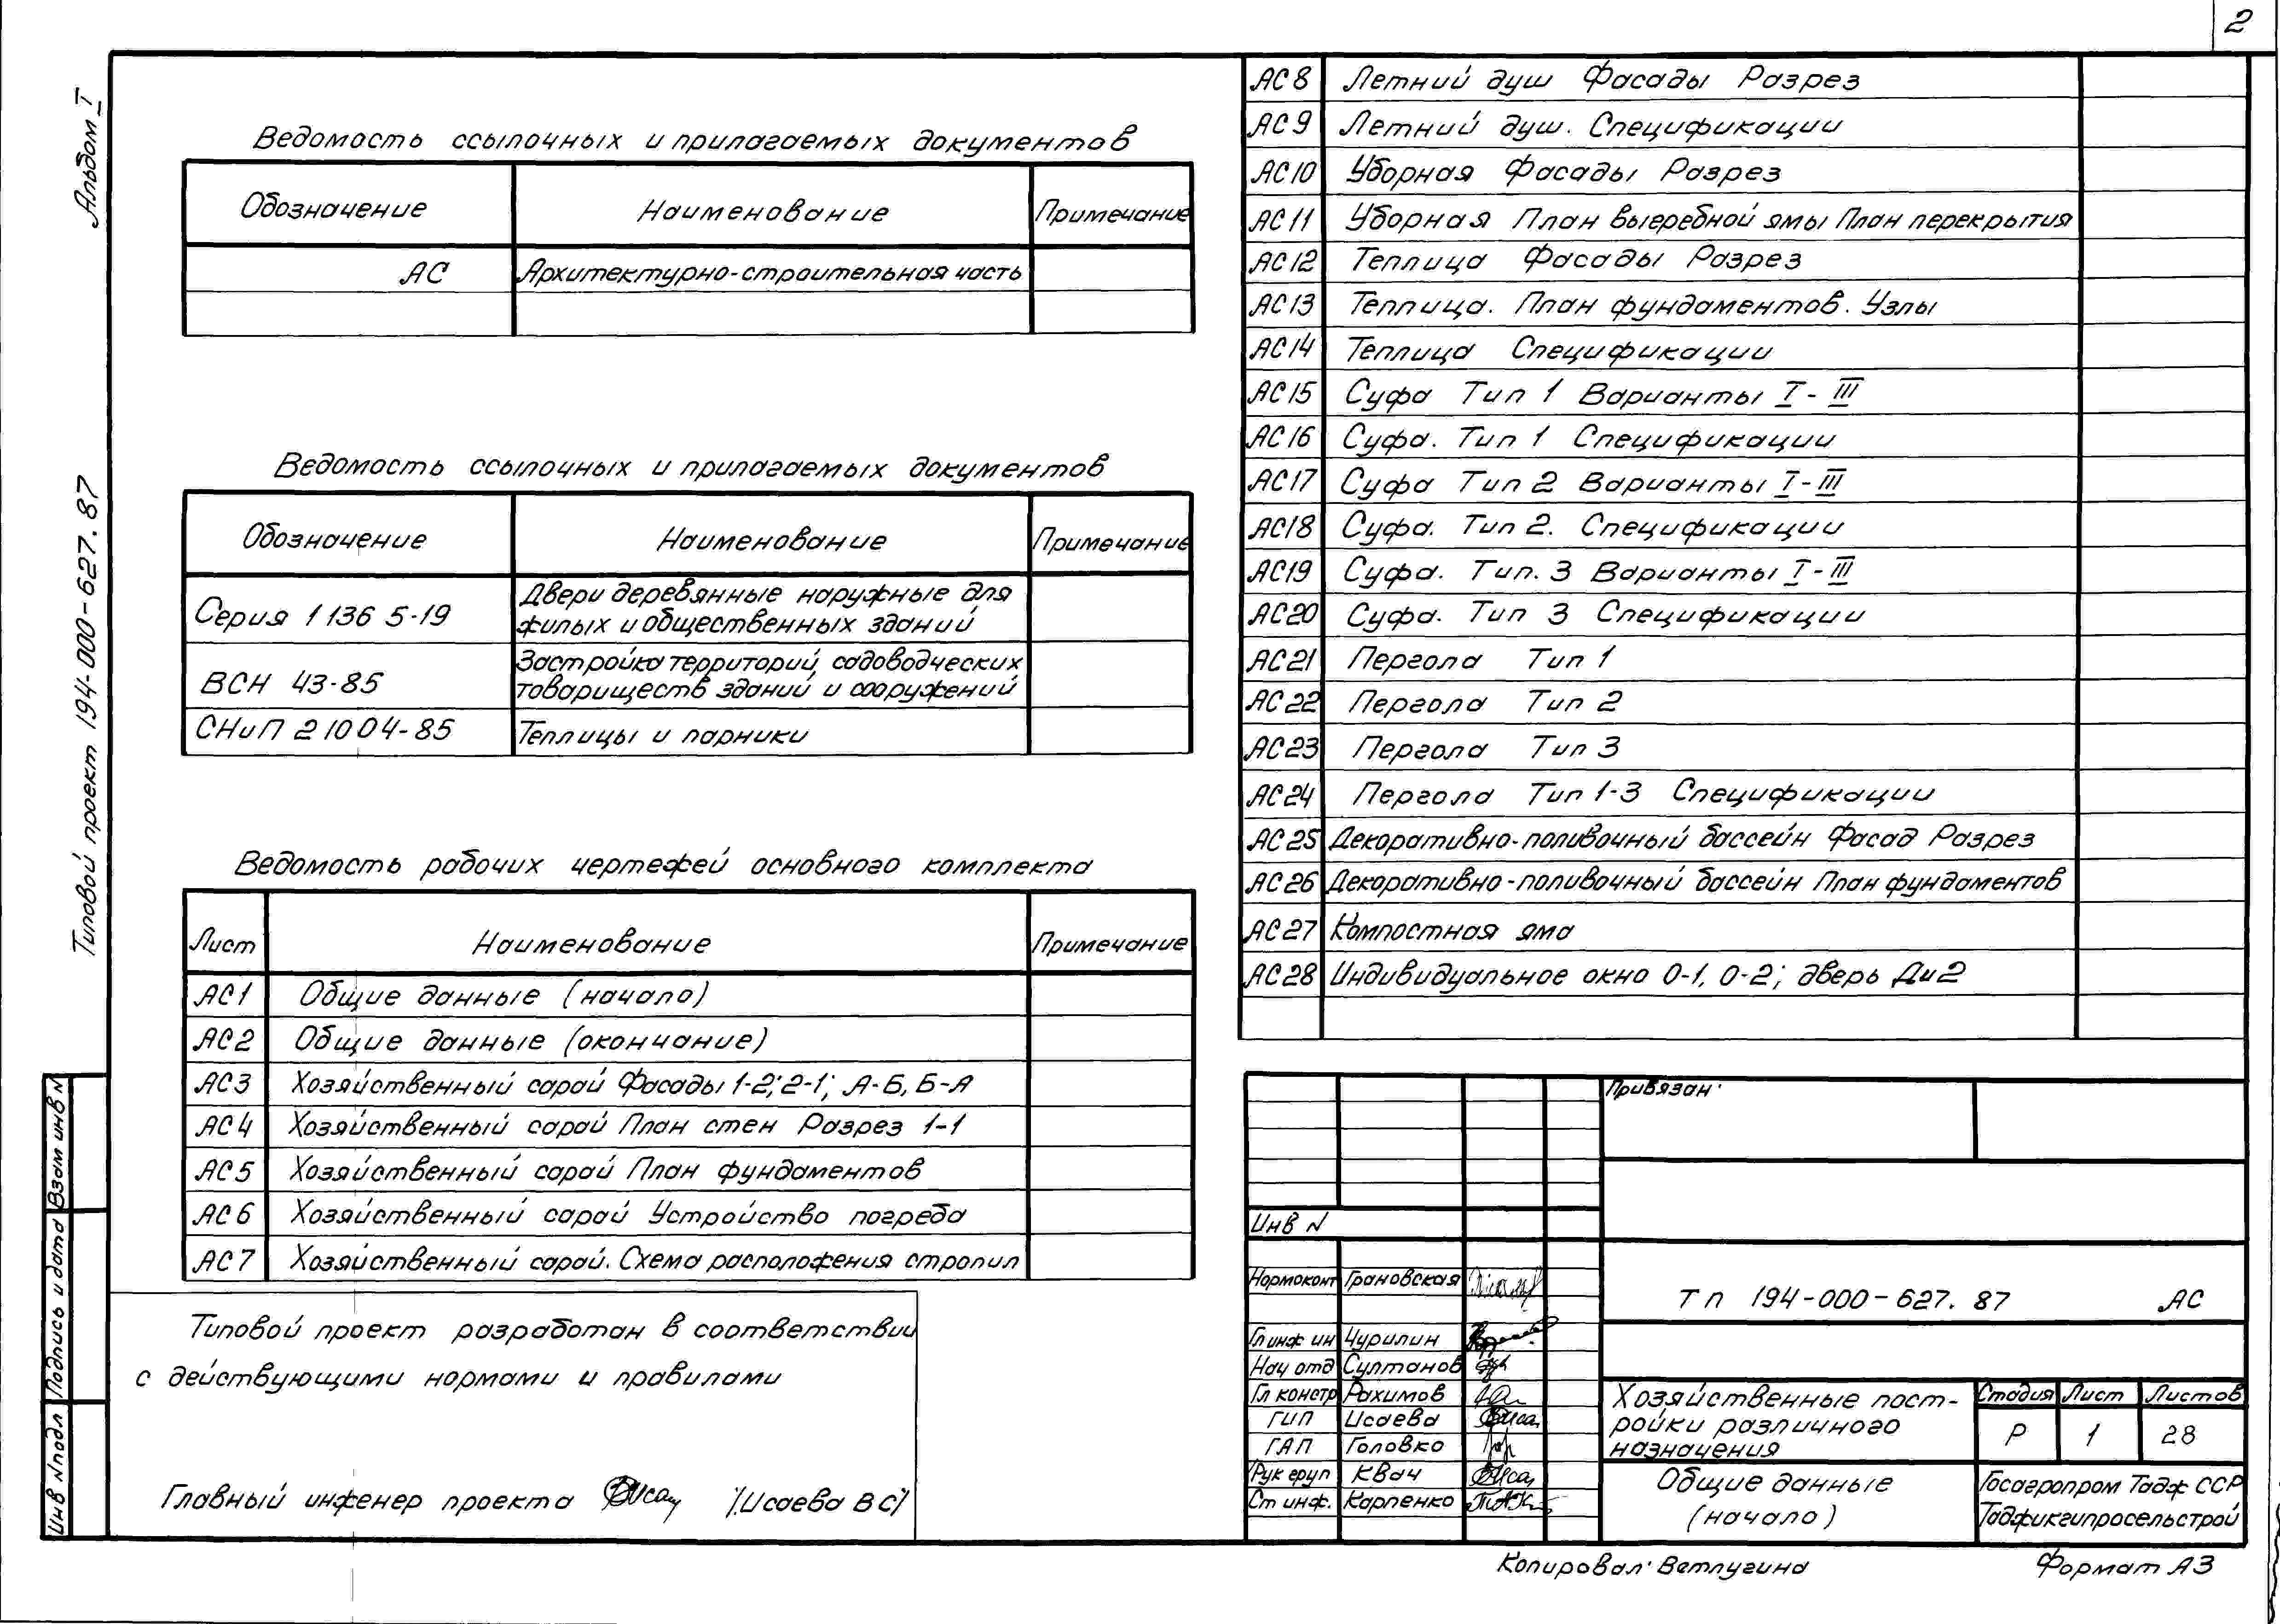 2
Альбом I
Типовой проект 194-000-627.87
Ведомость ссылочных и прилагаемых документов
Обозначение Наименование Примечание
АС Архитектурно-строительная часть
Ведомость ссылочных и прилагаемых документов
Обозначение Наименование Примечание
Серия 1 136 5-19 Двери деревянные наружные для
жилых и общественных зданий
ВСН 43-85 Застройка территорий, садоводческих
товариществ зданий и сооружений
СНиП 2 10 04-85 Теплицы и парники
Ведомость рабочих чертежей основного комплекта
Лист Наименование Примечание
АС1 Общие данные (начало)
АС2 Общие данные (окончание)
АС3 Хозяйственный сарай Фасады 1-2; 2-1; А-Б, Б-А
АС4 Хозяйственный сарай План стен Разрез 1-1
АС5 Хозяйственный сарай План фундаментов
АС6 Хозяйственный сарай Устройство погреба
АС7 Хозяйственный сарай. Схема расположения стропил
Типовой проект разработан в соответствии
с действующими нормами и правилами
Главный инженер проекта /Исаева В С/
АС8 Летний душ Фасады Разрез
АС9 Летний душ. Спецификации
АС10 Уборная Фасады Разрез
АС11 Уборная План выгребной ямы План перекрытия
АС12 Теплица Фасады Разрез
АС13 Теплица. План фундаментов. Узлы
АС14 Теплица Спецификации
АС15 Суфа Тип 1 Варианты I-III
АС16 Суфа. Тип 1 Спецификации
АС17 Суфа Тип 2 Варианты I-III
АС18 Суфа. Тип 2. Спецификации
АС19 Суфа. Тип. 3 Варианты I-III
АС20 Суфа. Тип 3 Спецификации
АС21 Пергола Тип 1
АС22 Пергола Тип 2
АС23 Пергола Тип 3
АС24 Пергола Тип 1-3 Спецификации
АС25 Декоративно-поливочный бассейн Фасад Разрез
АС26 Декоративно-поливочный бассейн План фундаментов
АС27 Компостная яма
АС28 Индивидуальное окно О-1, О-2; дверь Ди2
Привязан:
Инв N
Нормоконт Грановская
Гл инж ин Чурилин
Нач отд Султанов
Гл констр Рахимов
ГИП Исаева
ГАП Головко
Рук груп Квач
Ст инж. Карпенко
ТП 194-000-627.87 АС
Хозяйственные пост-
ройки различного
назначения
Стадия Лист Листов
Р 1 28
Общие данные
(начало)
Госагропром Тадж ССР
Таджикгипросельстрой
Взам инв N
Подпись и дата
Инв N подл
Копировал: Ветлугина Формат А3